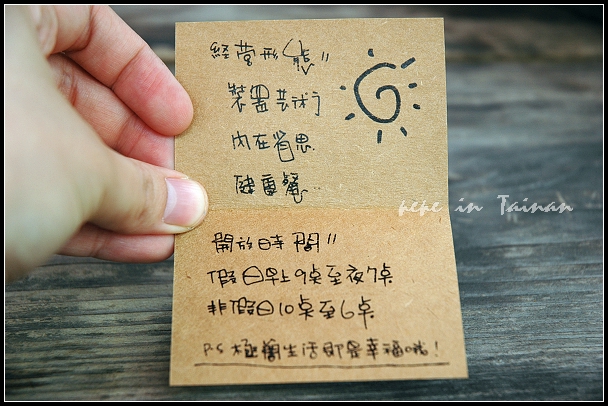 経営形態"
裝置芸術
內在省思.
健康餐...
pepe in Tainan
開放時間"
假日早上9点至夜7点
非假日10点至6点
P.S 極簡生活即是幸福哦!